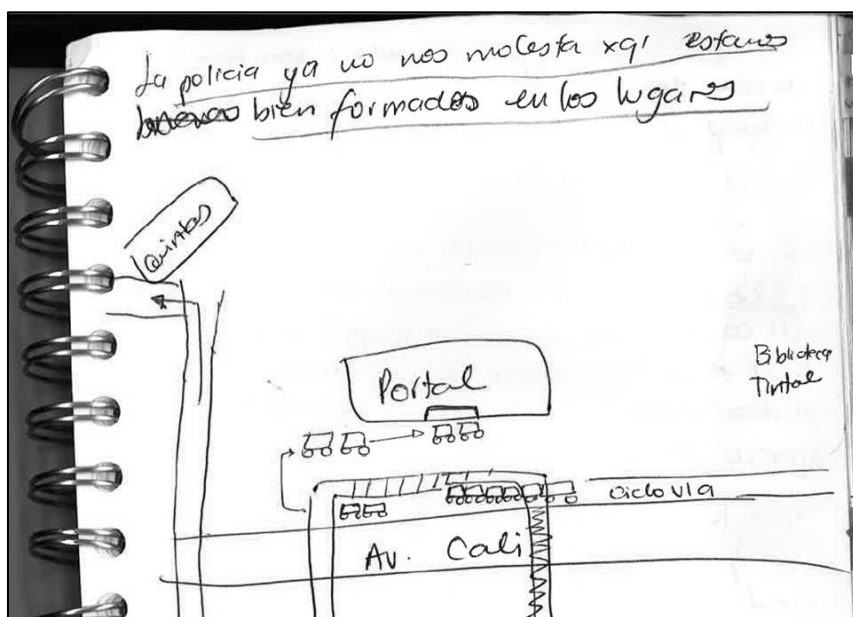 La policia ya no nos molesta xq' estamos
bien formados en los lugares
Quintas
Portal
Biblioteca
Tintal
ciclovía
Av. Cali